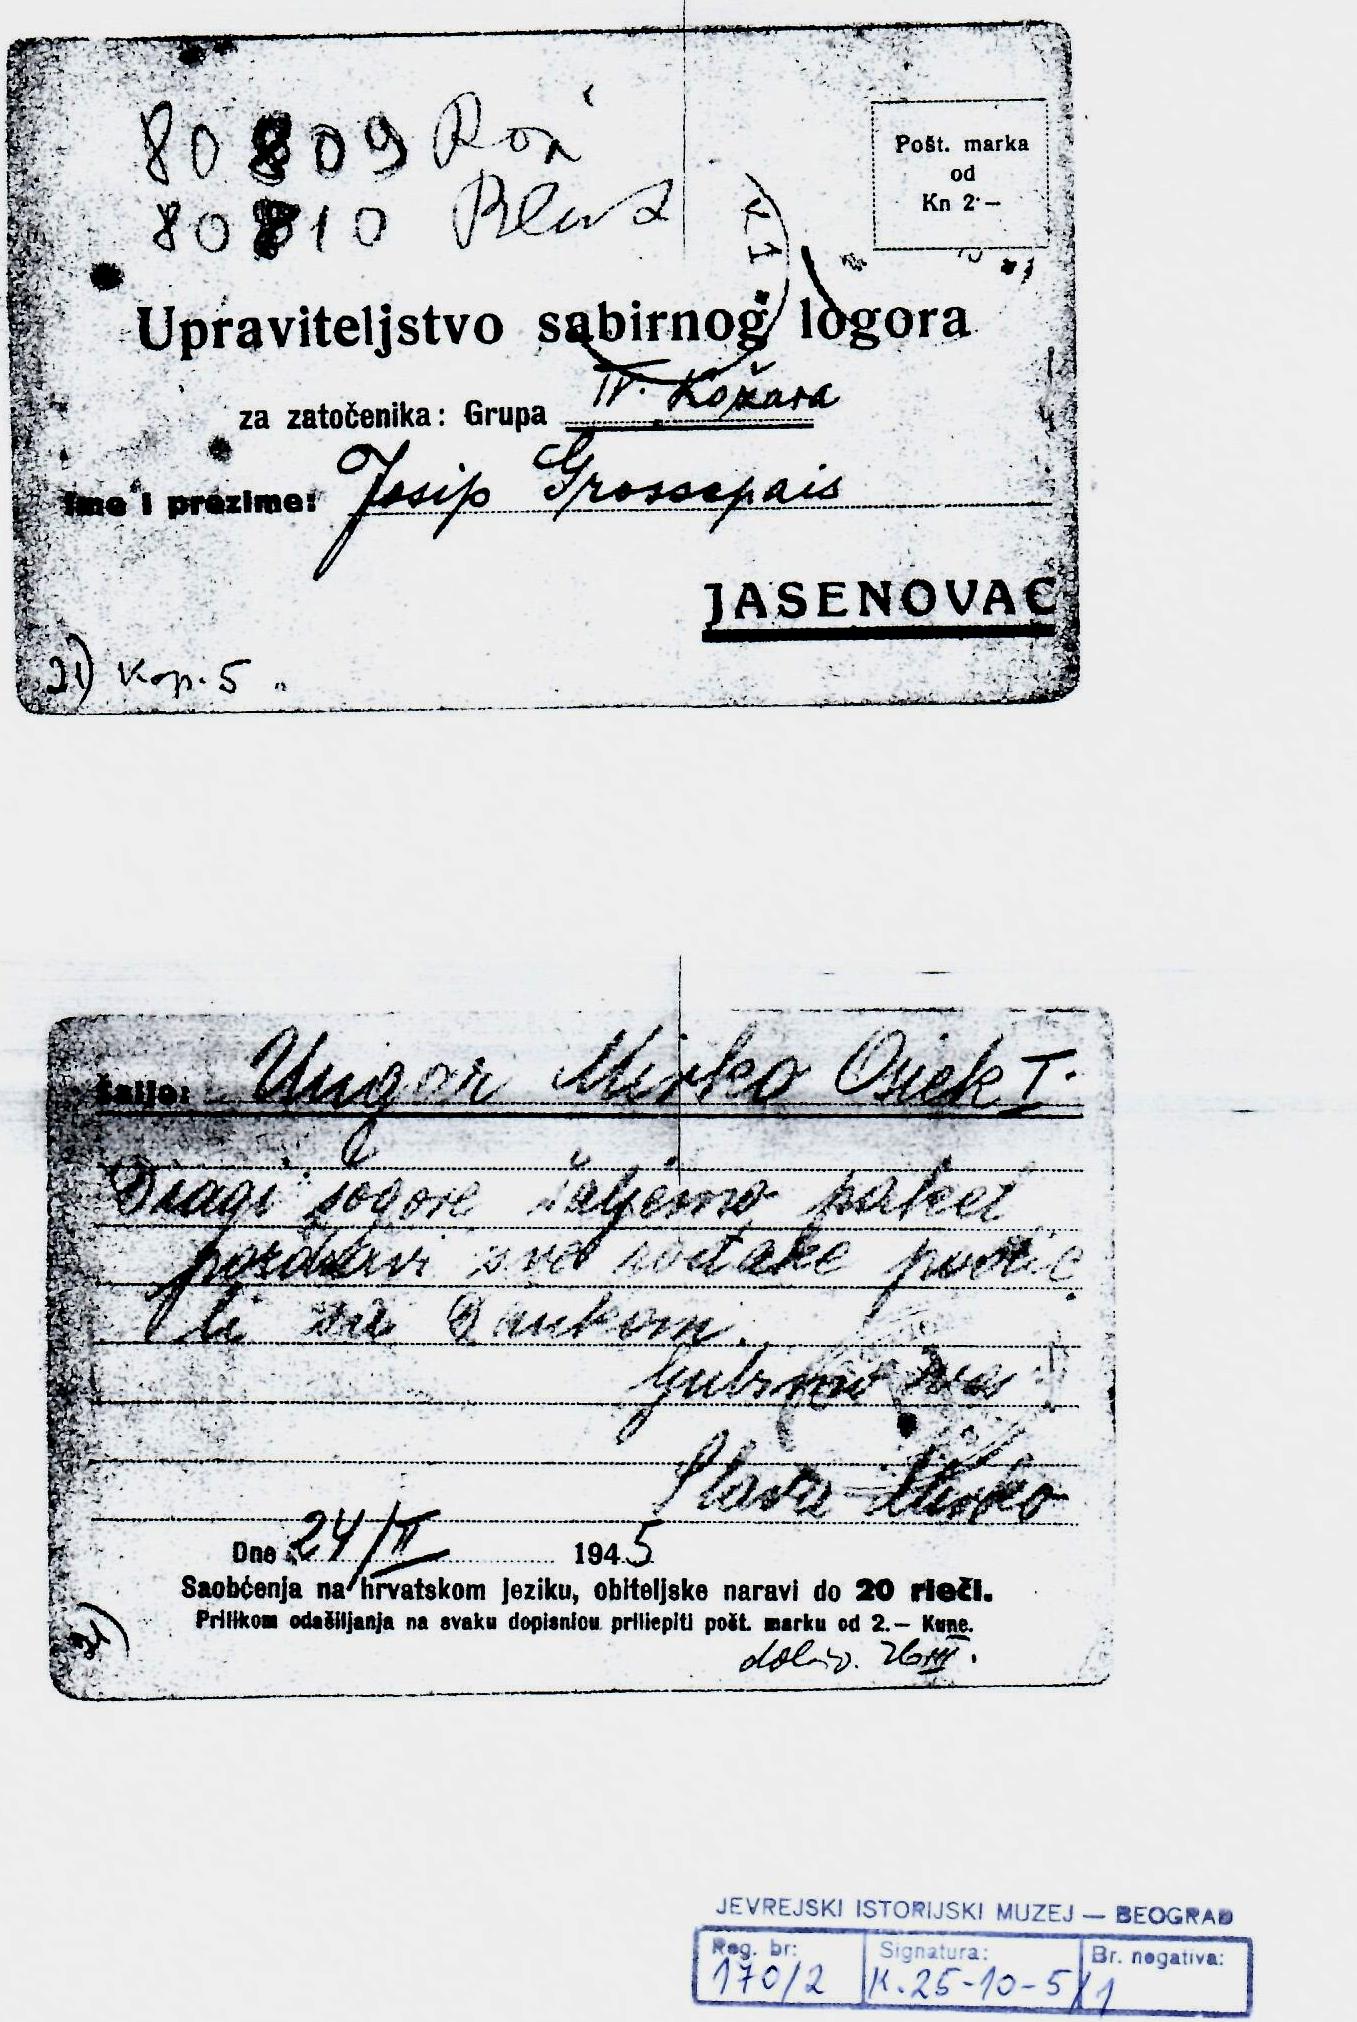 80809
80810
Pošt. marka
od
Kn 2·—
Upraviteljstvo sabirnog logora
za zatočenika: Grupa IV. Kožara
Ime i prezime: Josip Grossepais
JASENOVAC
21) Kop. 5
Šalje: Ungar Mirko Osiek I.
Dragi šogore šaljemo paket
pozdravi sve
li
Ljubimo
Slava Mirko
Dne 24/II 1945
Saobćenja na hrvatskom jeziku, obiteljske naravi do 20 rieči.
Prilikom odašiljanja na svaku dopisnicu priliepiti pošt. marku od 2.— Kune.
26 III.
JEVREJSKI ISTORIJSKI MUZEJ — BEOGRAD
Reg. br: Signatura: Br. negativa:
170/2 K.25-10-5/1